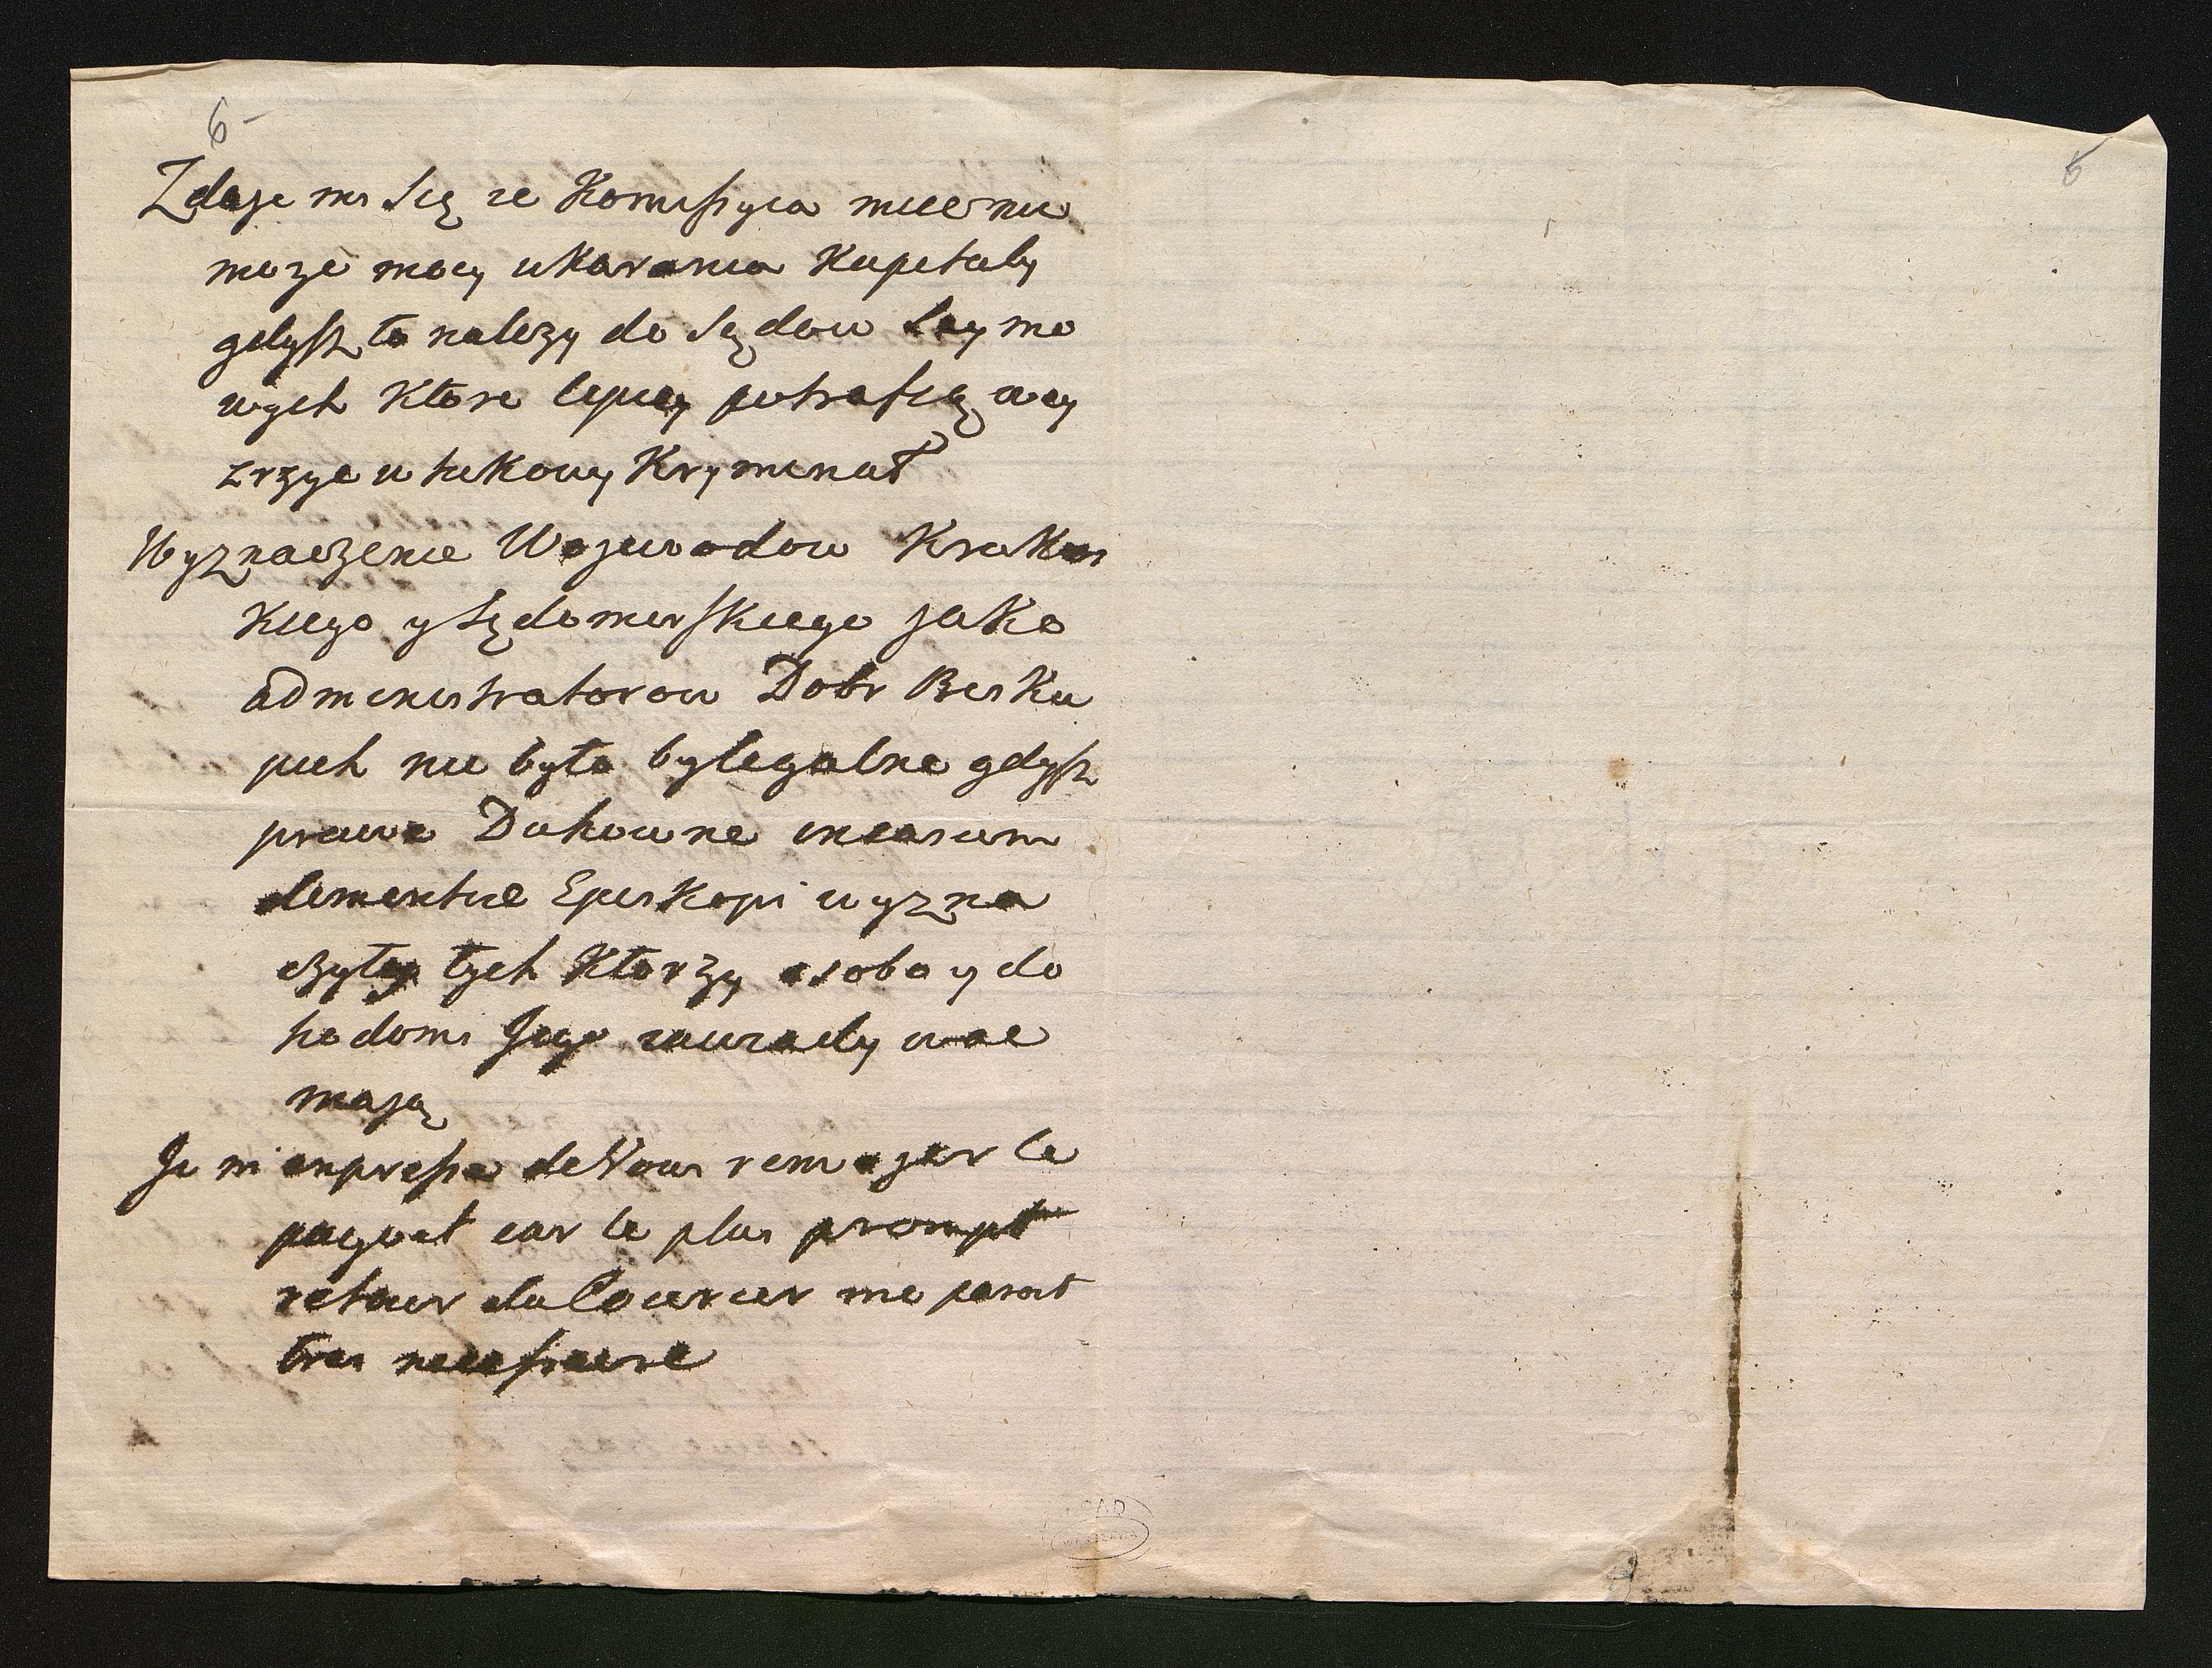 6-
6
Zdaje mi Się ze Komissyia miec nie
moze mocy ukarania Kapituły
gdysz to nalezy do Sądow Seymo
wych ktore lepiey potrafią wey
zrzyc w takowy Kryminał
Wyznaczenie Wojewodow Krakos
kiego y Sędomirskiego jako
administratorow Dobr Bisku
pich nie było by legalne gdysz
prawo Duhowne in casum
dementiae Episkopi wyzna
czyło tych Ktorzy osobą y do
hodami Jego zawiadywac
mają
Je m'enpresse de Vous renvojer le
paquet car le plus prompt
retour du Courier me parait
tres necessaire